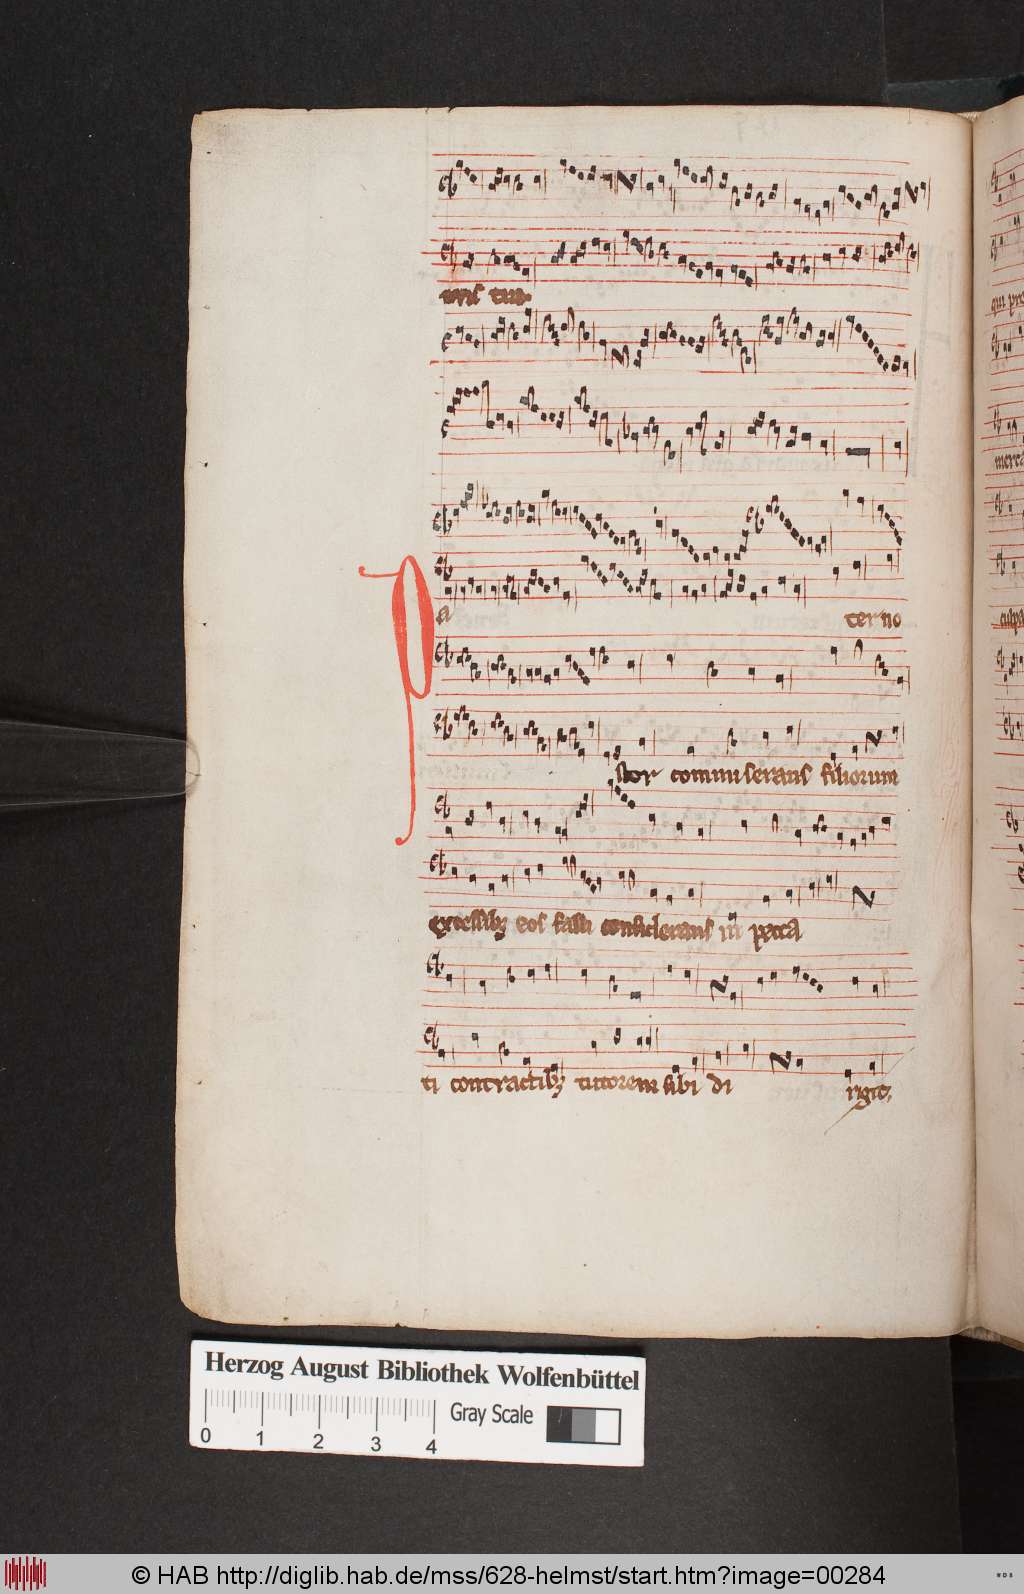 tuus.
a terno
stor commiserans filiorum
excessibꝫ eos fassi considerans in pecca
ti contractibꝫ tutorem sibi di rigit.
qui pro
merca
culpa
Herzog August Bibliothek Wolfenbüttel
0 1 2 3 4 Gray Scale
© HAB http://diglib.hab.de/mss/628-helmst/start.htm?image=00284
WDB